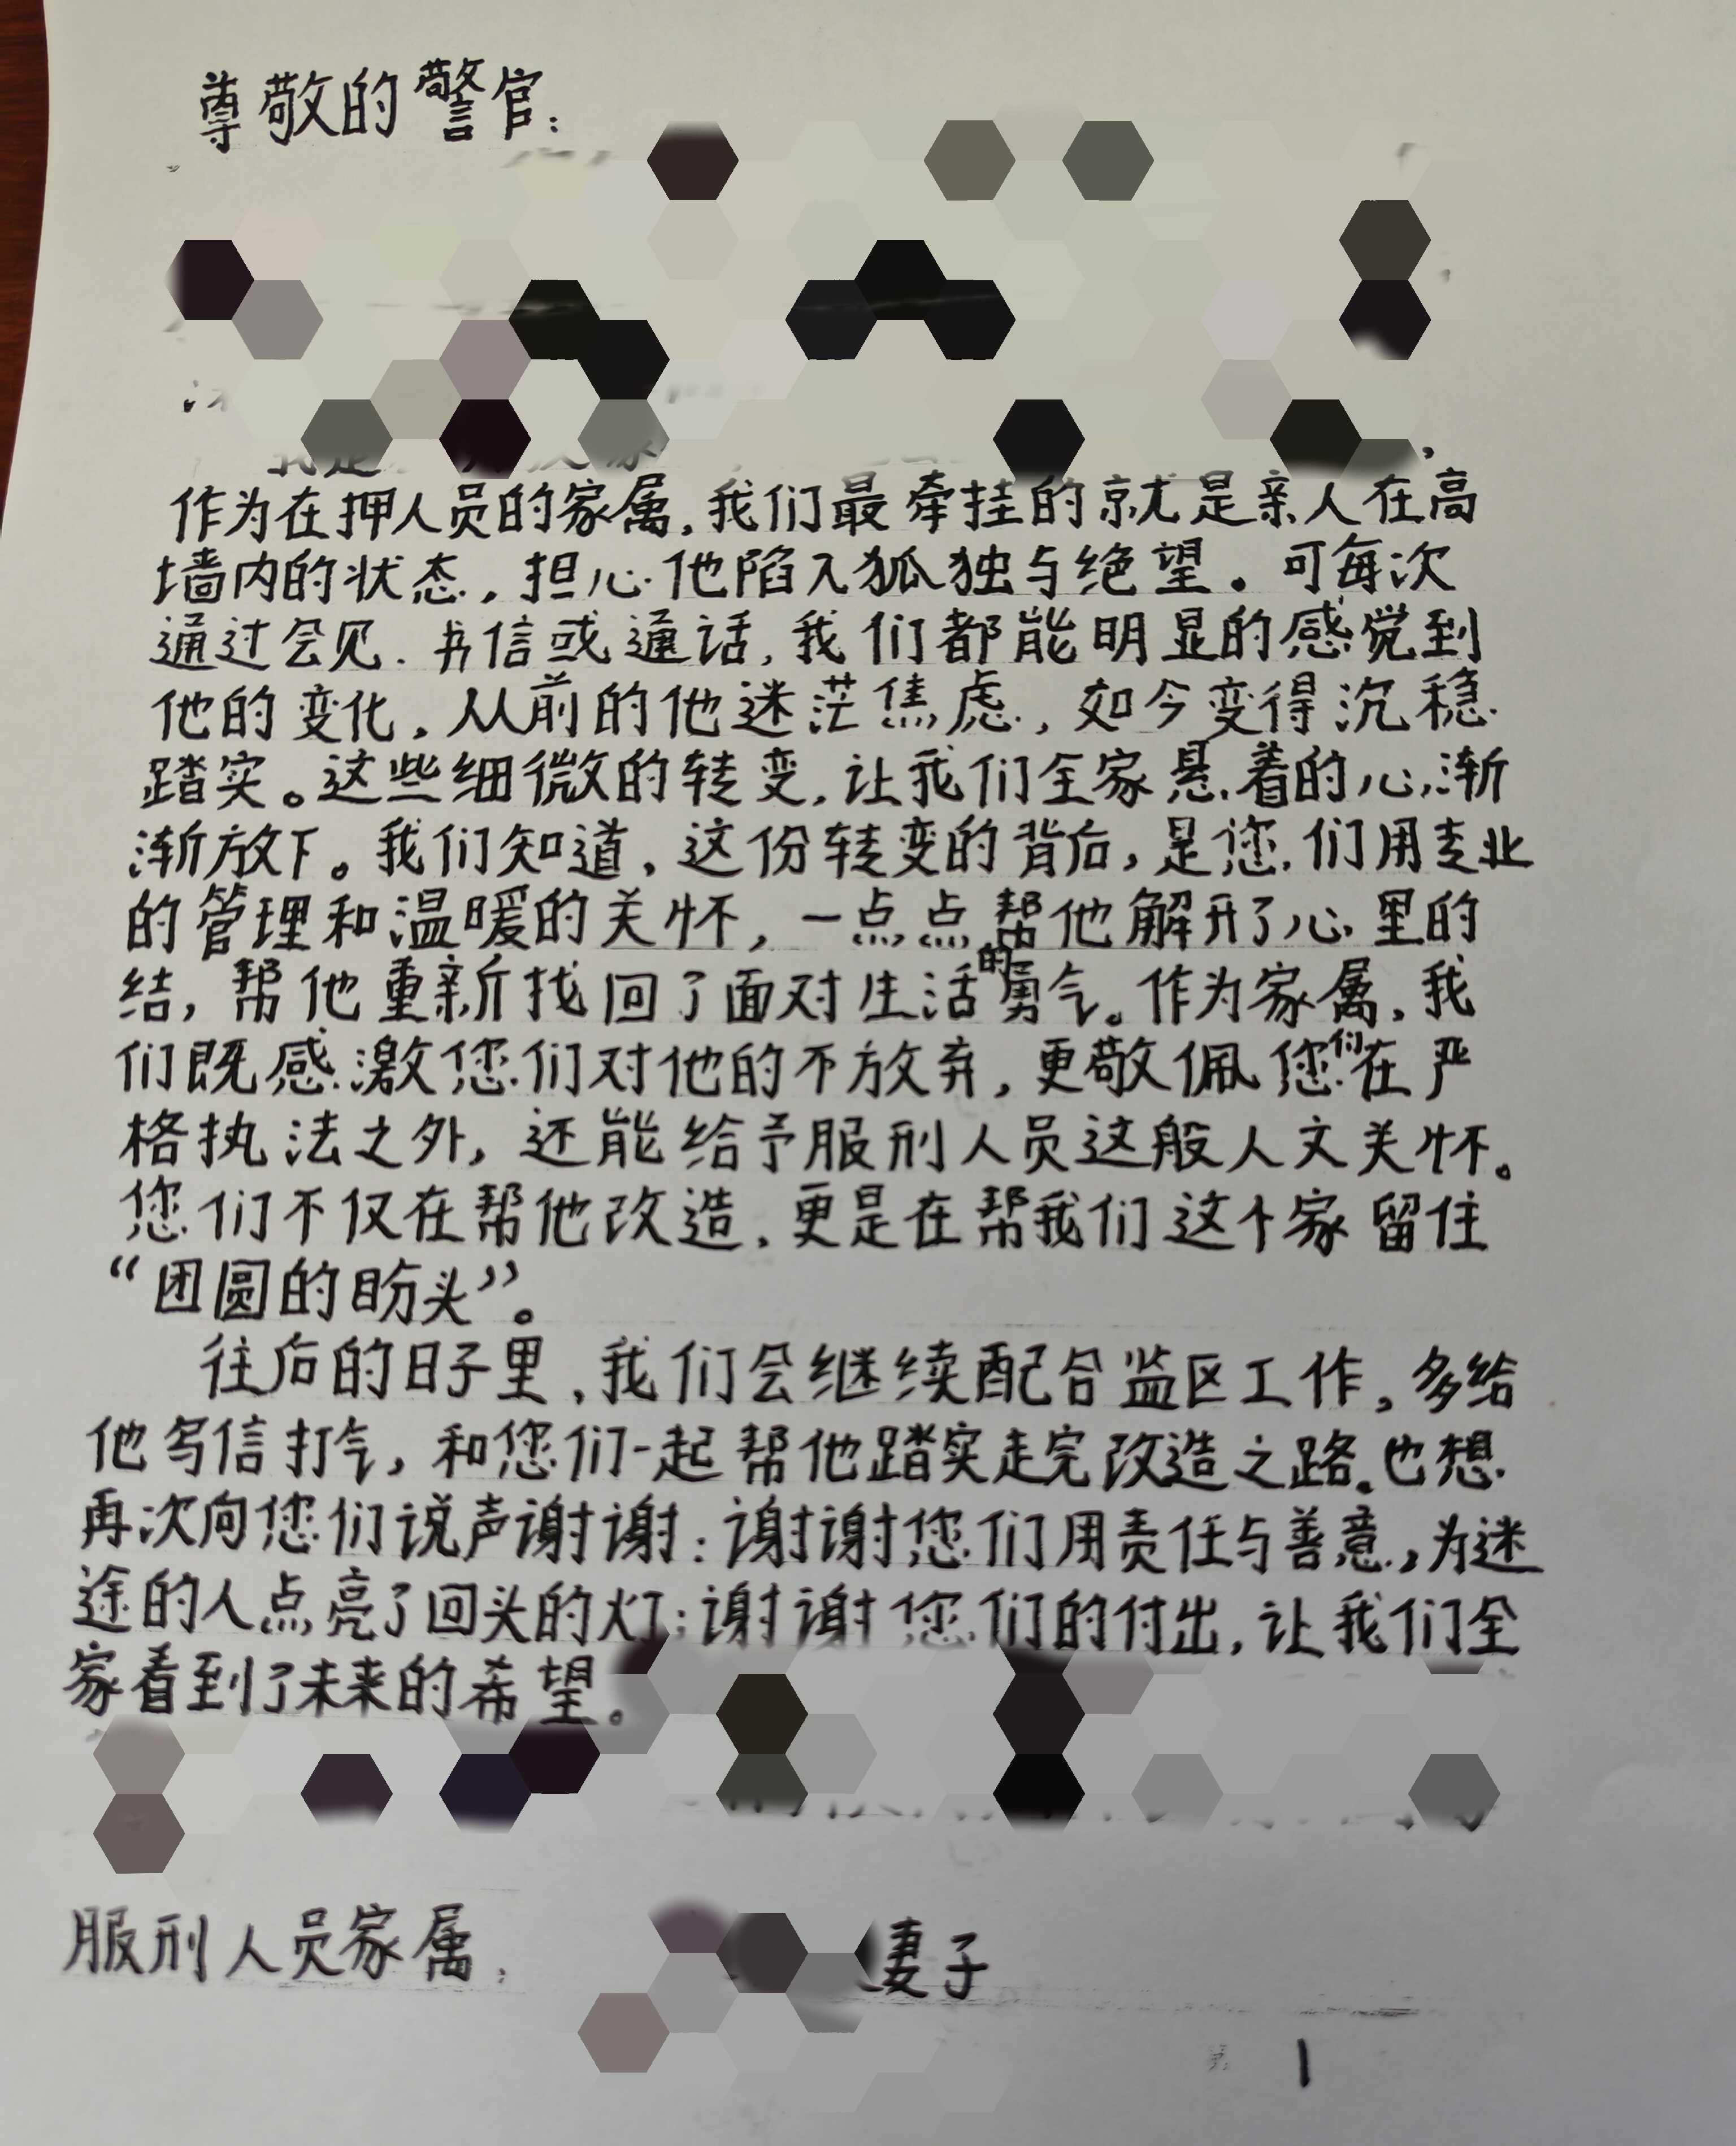 尊敬的警官:
作为在押人员的家属,我们最牵挂的就是亲人在高
墙内的状态,担心他陷入孤独与绝望。可每次
通过会见、书信或通话,我们都能明显的感觉到
他的变化,从前的他迷茫焦虑,如今变得沉稳
踏实。这些细微的转变,让我们全家悬着的心,渐
渐放下。我们知道,这份转变的背后,是您们用专业
的管理和温暖的关怀,一点点帮他解开了心里的
结,帮他重新找回了面对生活的勇气。作为家属,我
们既感激您们对他的不放弃,更敬佩您们在严
格执法之外,还能给予服刑人员这般人文关怀。
您们不仅在帮他改造,更是在帮我们这个家留住
“团圆的盼头”。
往后的日子里,我们会继续配合监区工作,多给
他写信打气,和您们一起帮他踏实走完改造之路。也想
再次向您们说声谢谢:谢谢您们用责任与善意,为迷
途的人点亮了回头的灯;谢谢您们的付出,让我们全
家看到了未来的希望。
服刑人员家属: 妻子
1